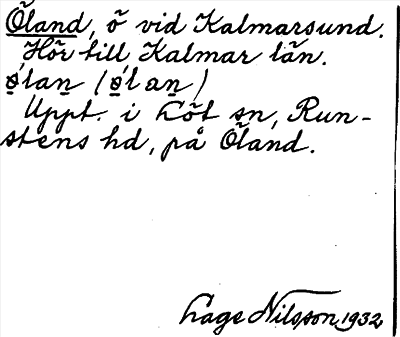 Öland, ö vid Kalmarsund.
Hör till Kalmar län.
ø̱´laṉ (ø̱´l aṉ)
Uppt. i Löt sn, Run-
stens hd, på Öland.
Lage Nilsson 1932